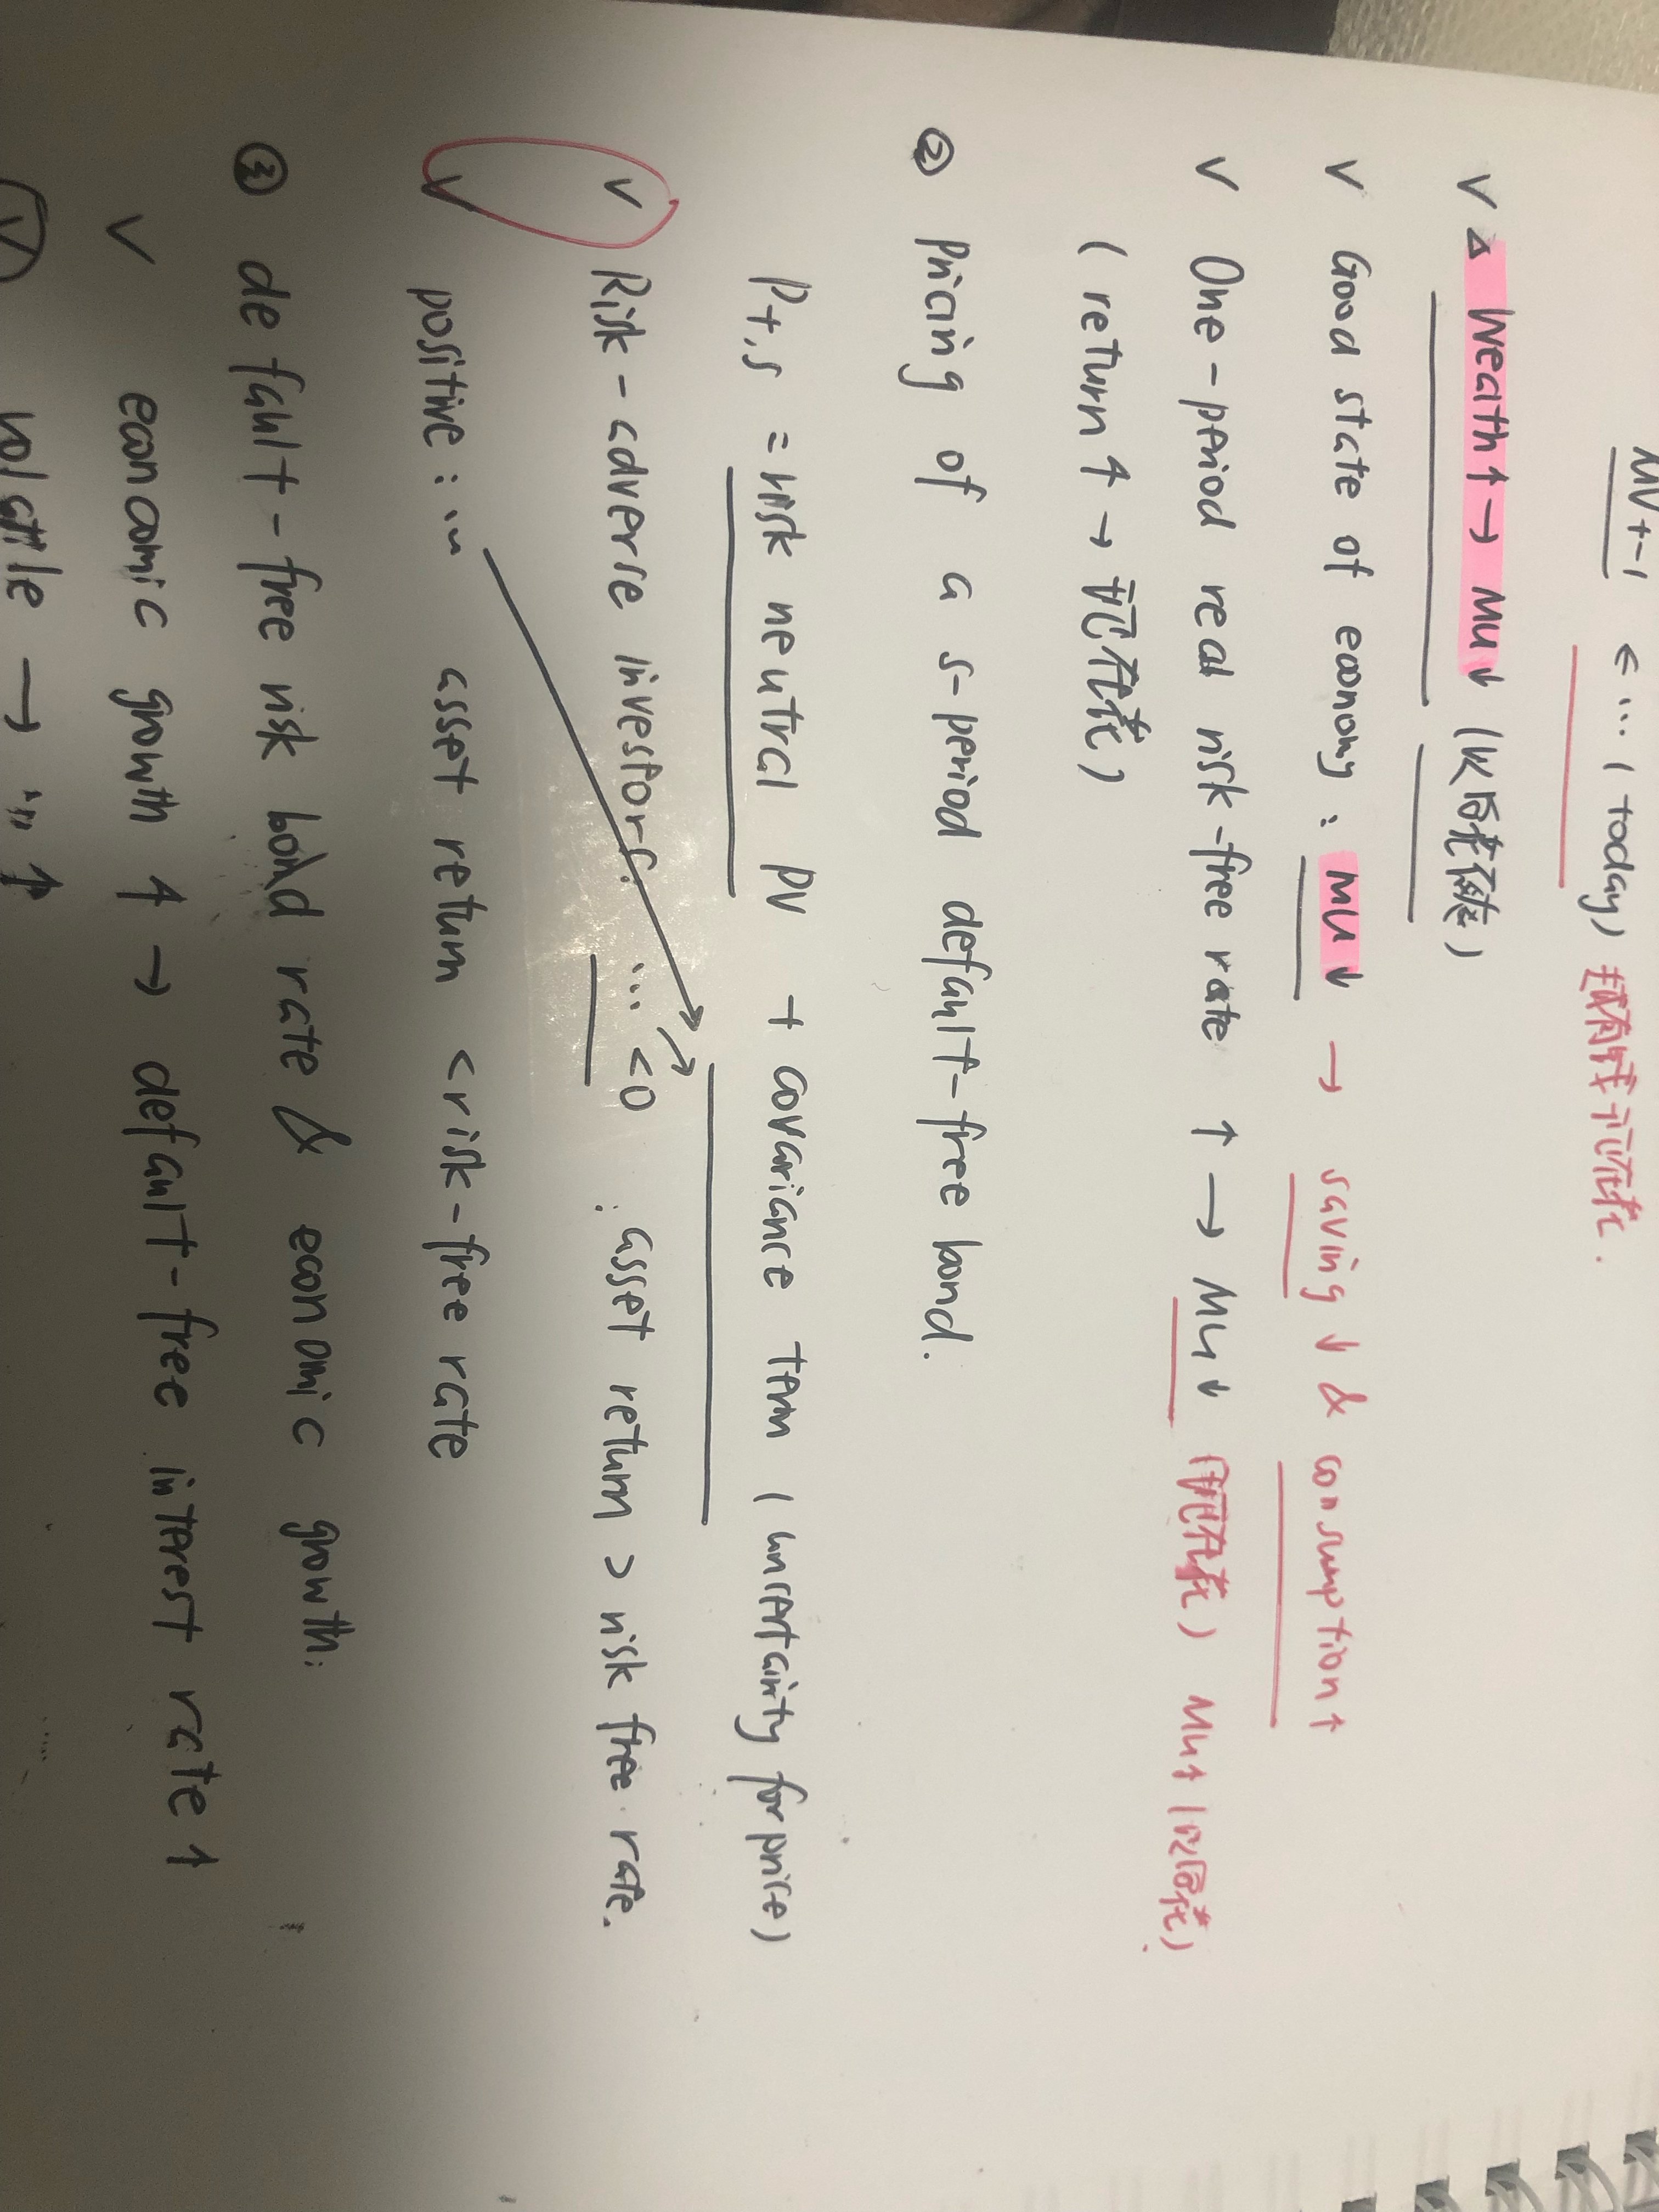 MV+-1 ← ... ( today)
∨ △ Weath↑ → MU↓ (以后花
∨ Good state of economy : MU↓ → saving ↓ & consumption↑
∨ One-period real risk-free rate ↑ → MU↓ 现在花) MU↑ 以后花)
( return↑ → 现在花)
② pricing of a s-period default-free bond.
Pt,s = risk neutral PV + covariance term ( uncertainty for price)
∨ Risk-adverse investors. ... <0 : asset return > risk free rate.
∨ positive : ... asset return < risk-free rate
③ default-free risk bond rate & economic growth:
∨ economic growth ↑ → default-free interest rate ↑
∨ volatile → ... ↑